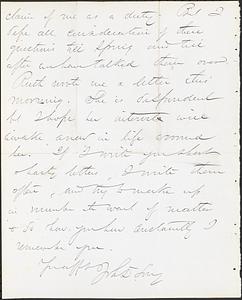 claim of me as a duty. But I
defer all consideration of these
questions till Spring and till
after we have talked them over
Ruth wrote me a letter this
morning. She is despondent
but I hope her interests will
awake anew in life around
her. If I write you short
& hasty letters, I write them
often, and try to make up
in number the want of matter
& to show you how constantly I
remember you.